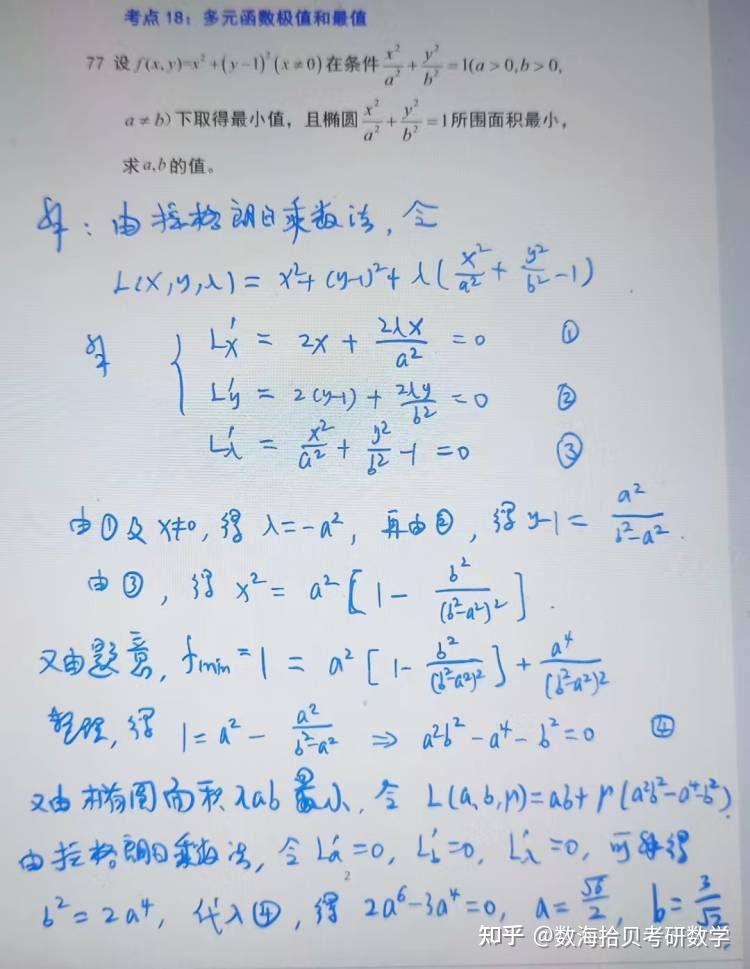 考点 18：多元函数极值和最值
77 设 f(x,y)=x²+(y-1)²(x≠0)在条件x²/a²+y²/b²=1(a>0,b>0,
a≠b)下取得最小值，且椭圆x²/a²+y²/b²=1所围面积最小，
求a,b的值。
解：由拉格朗日乘数法，令
L(x,y,λ)=x²+(y-1)²+λ(x²/a²+y²/b²-1)
解 { L'x = 2x + 2λx/a² = 0 ①
L'y = 2(y-1) + 2λy/b² = 0 ②
L'λ = x²/a² + y²/b² - 1 = 0 ③
由①及 x≠0，得 λ=-a²，再由②，得 y-1 = a²/(b²-a²).
由③，得 x² = a²[1 - b²/(b²-a²)²].
又由题意，fmin = 1 = a²[1 - b²/(b²-a²)²] + a⁴/(b²-a²)²
整理，得 1 = a² - a²/(b²-a²) ⇒ a²b²-a⁴-b²=0 ④
又由椭圆面积 λab 最小，令 L(a,b,μ)=ab+μ(a²b²-a⁴-b²)
由拉格朗日乘数法，令 L'a=0, L'b=0, L'λ=0, 可解得
2
b²=2a⁴，代入④，得 2a⁶-3a⁴=0, a=√6/2, b=3/√2
知乎 @数海拾贝考研数学